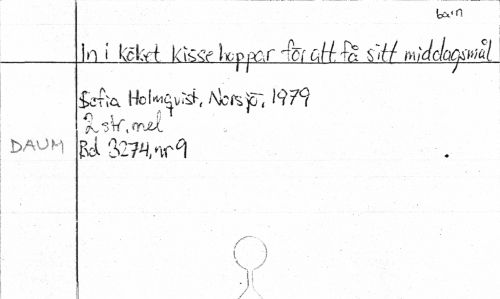 barn
In i köket kisse hoppar för att få sitt middagsmål
Sofia Holmqvist, Norsjö, 1979
2 str, mel
DAUM Bd 3274, nr 9